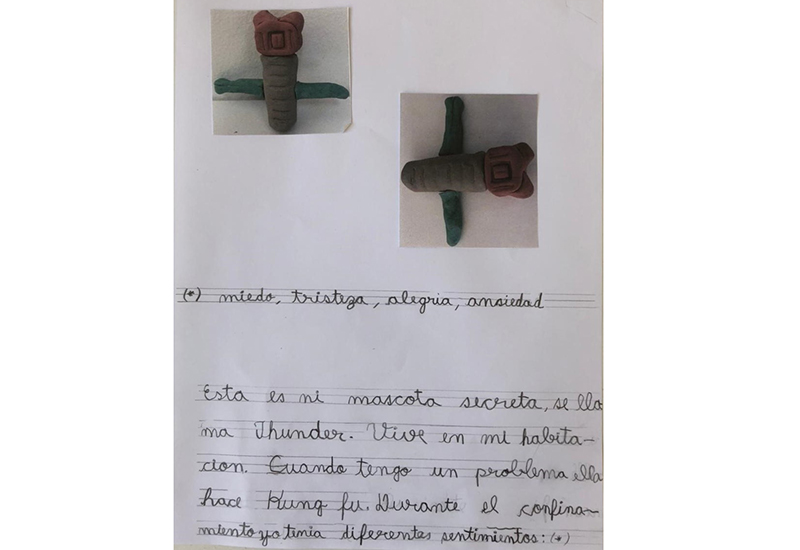 (*) miedo, tristeza, alegria, ansiedad
Esta es ni mascota secreta, se lla
ma Thunder. Vive en mi habita-
cion. Cuando tengo un problema ella
hace Kung fu. Durante el confina-
miento yo tenia diferentes sentimientos: (*)